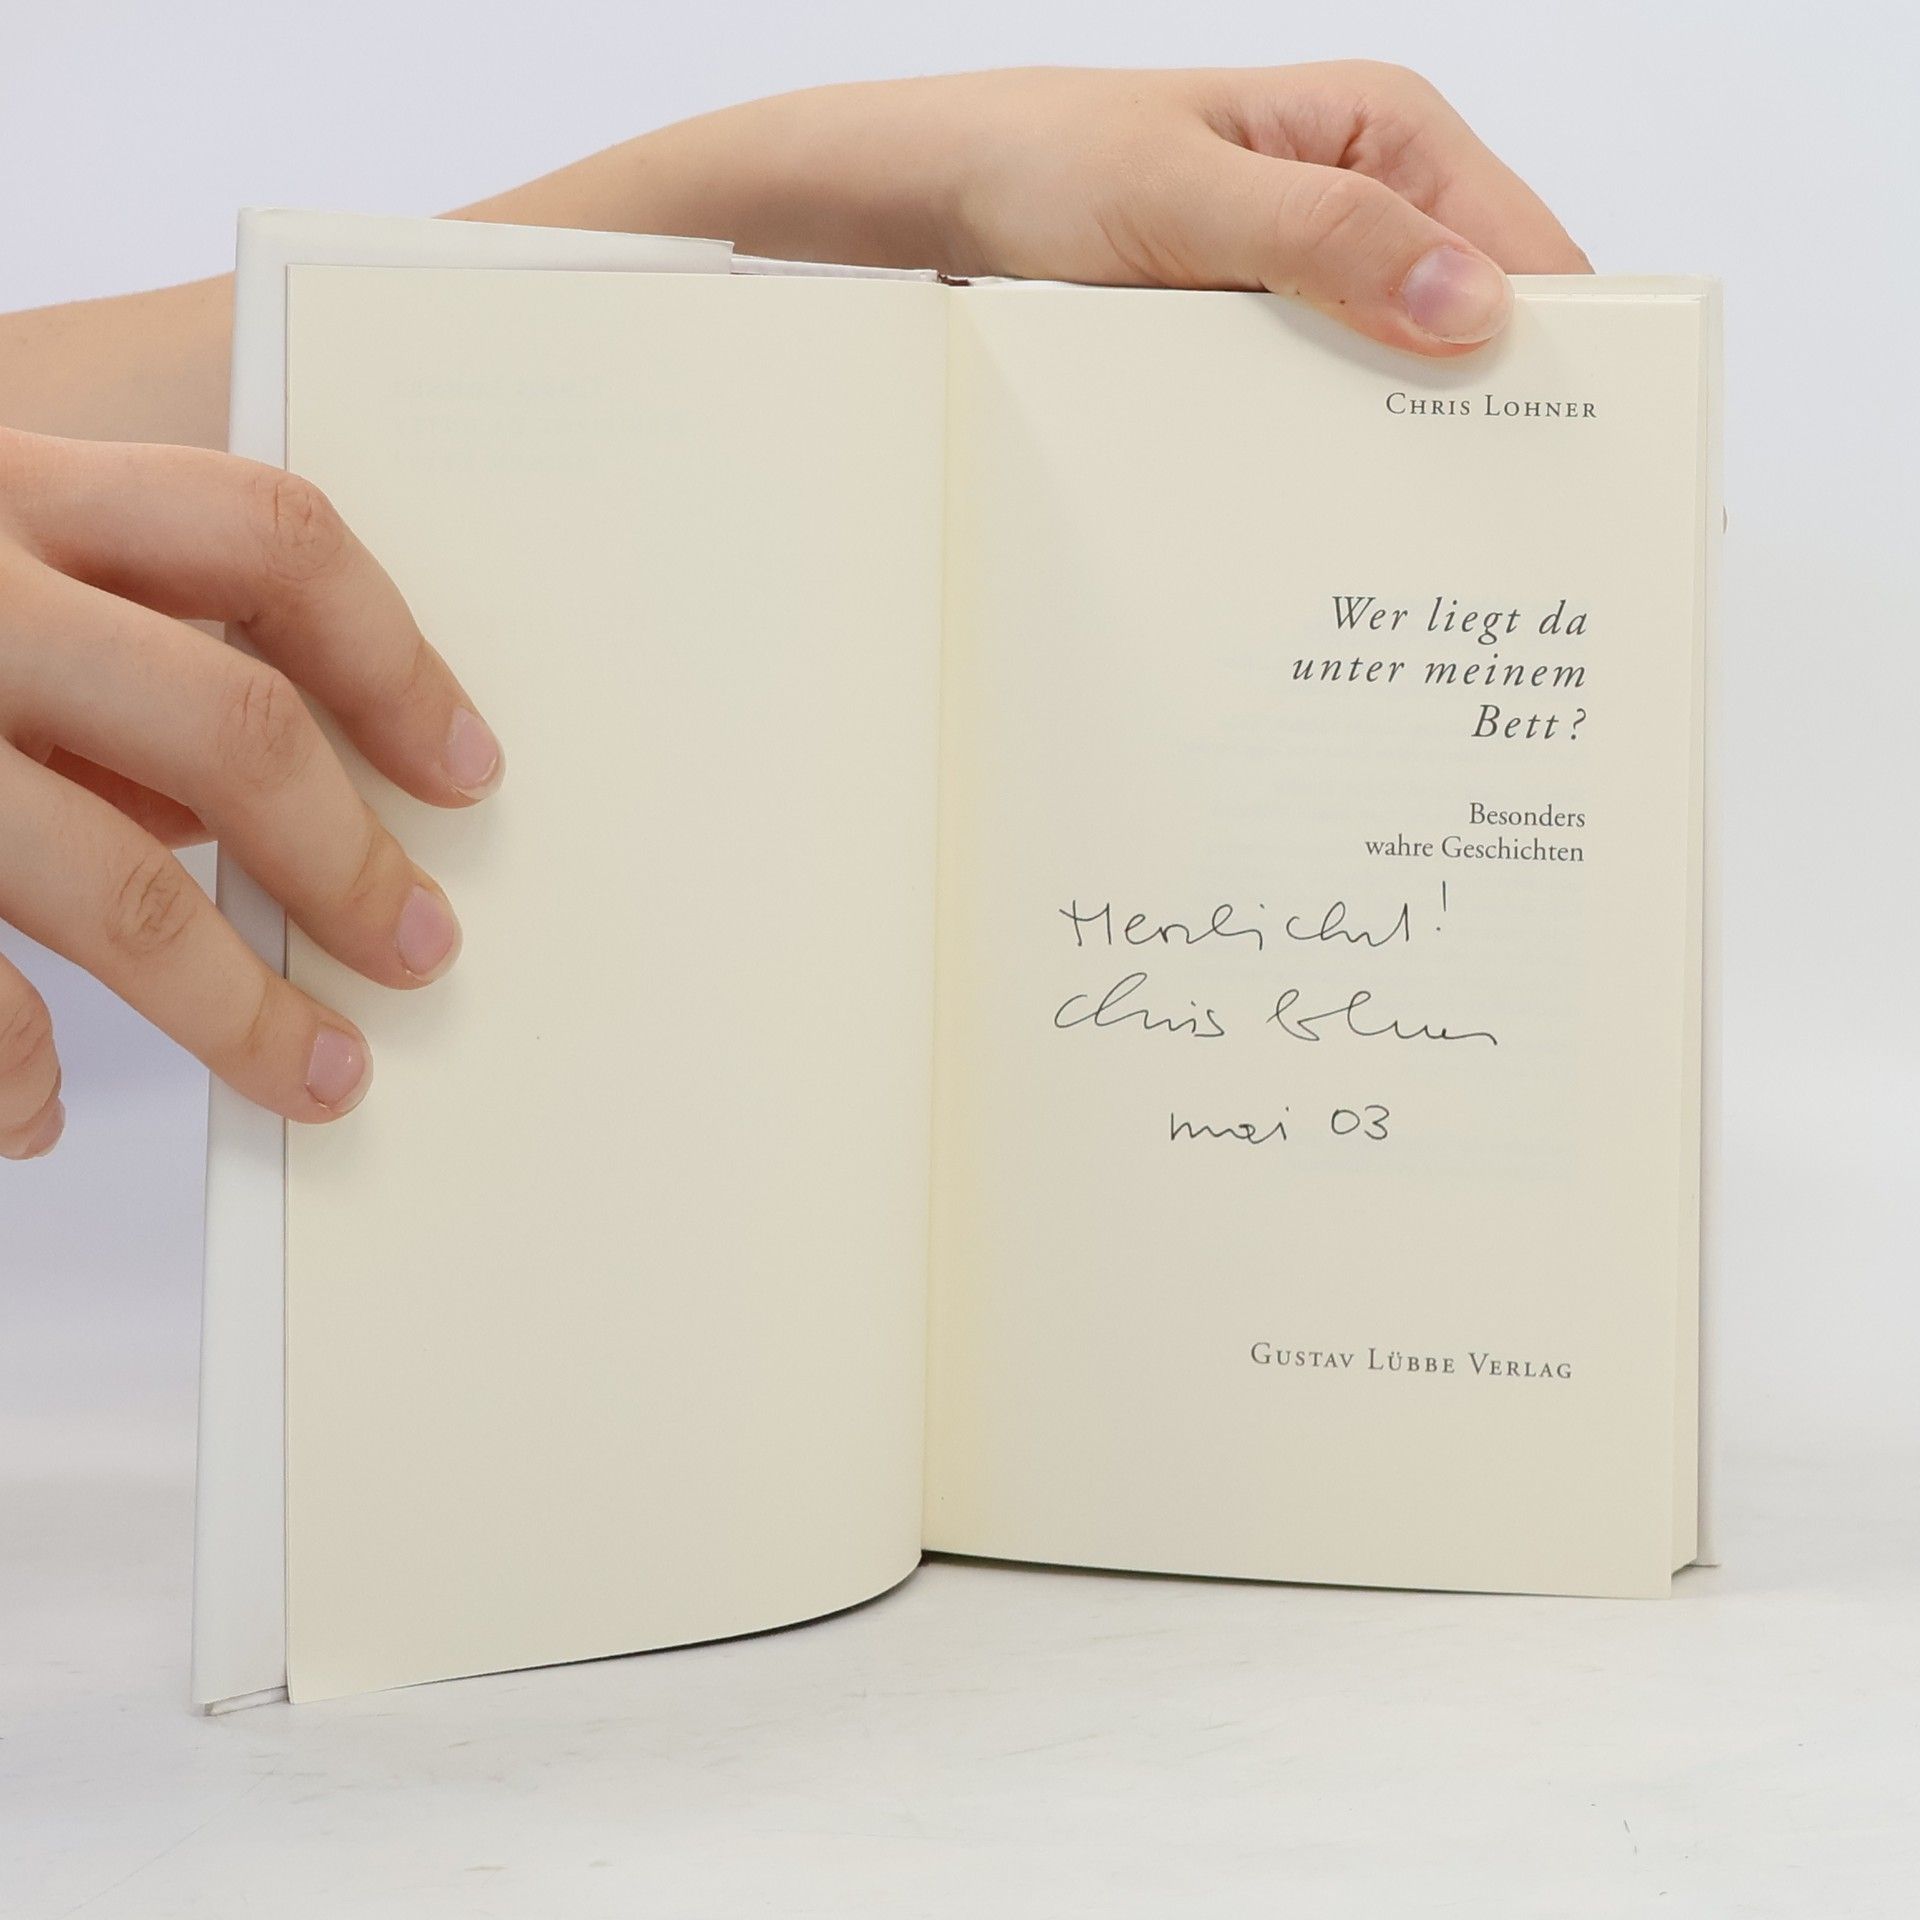 CHRIS LOHNER
Wer liegt da
unter meinem
Bett?
Besonders
wahre Geschichten
Herzlichst!
Chris Lohner
mai 03
GUSTAV LÜBBE VERLAG